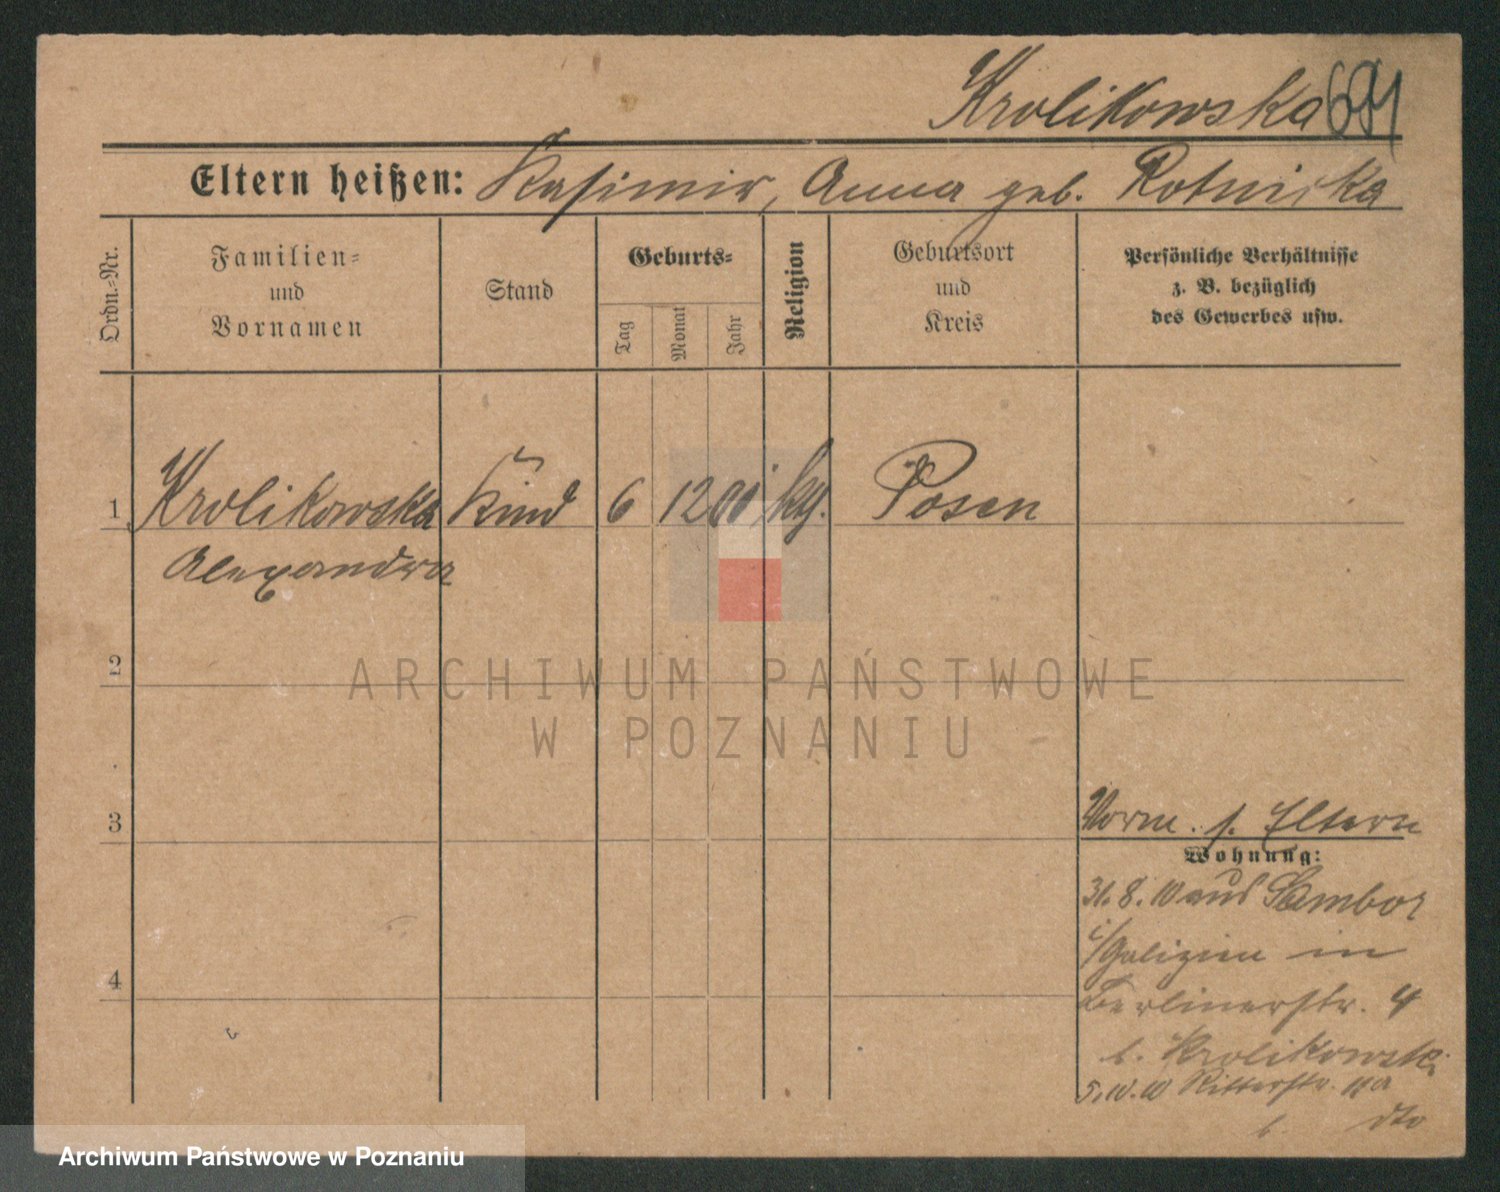 Krolikowska 691
Eltern heißen: Kasimir, Anna geb. Rotnicka
Ordn.-Nr.
Familien-
und
Vornamen
Stand
Geburts-
Tag
Monat
Jahr
Religion
Geburtsort
und
Kreis
Persönliche Verhältnisse
z. B. bezüglich
des Gewerbes usw.
1 Krolikowska Kind 6 12 00 kg. Posen
Alexandra
2
3
Vorm. s. Eltern
Wohnung:
31.8.10 aus Sambor
i/Galizien in
4
Berlinerstr. 4
b. Krolikowski
5.10.10 Ritterstr. 11a
b. dto
ARCHIWUM PAŃSTWOWE
W POZNANIU
Archiwum Państwowe w Poznaniu